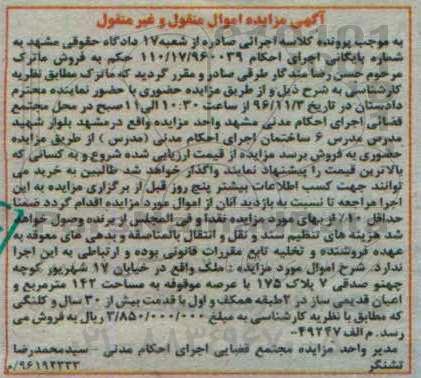 آگهی مزایده اموال منقول و غیر منقول
به موجب پرونده کلاسه اجرائی صادره از شعبه ۱۷ دادگاه حقوقی مشهد به
شماره بایگانی اجرای احکام ۱۱۰/۱۷/۹۶۰۰۳۹ حکم به فروش ماترک
مرحوم حسن رضا مندگار طرقی صادر و مقرر گردید که ماترک مطابق نظریه
کارشناسی به شرح ذیل و از طریق مزایده حضوری با حضور نماینده محترم
دادستان در تاریخ ۹۶/۱۱/۳ از ساعت ۱۰:۳۰ الی ۱۱ صبح در محل مجتمع
قضائی اجرای احکام مدنی مشهد واحد مزایده واقع درمشهد بلوار شهید
مدرس مدرس ۶ ساختمان اجرای احکام مدنی (مدرس) از طریق مزایده
حضوری به فروش برسد مزایده از قیمت ارزیابی شده شروع و به کسانی که
بالاترین قیمت را پیشنهاد نمایند واگذار خواهد شد طالبین به خرید می
توانند جهت کسب اطلاعات بیشتر پنج روز قبل از برگزاری مزایده به این
اجرا مراجعه تا نسبت به بازدید آنان از اموال مورد مزایده اقدام گردد ضمنا
حداقل ۱۰٪ از بهای مورد مزایده نقدا و فی المجلس از برنده وصول خواهد
شد هزینه های تنظیم سند و نقل و انتقال بالمناصفه و بدهی های معوقه به
عهده فروشنده و تخلیه تابع مقررات قانونی بوده و ارتباطی به این اجرا
ندارد. شرح اموال مورد مزایده : ملک واقع در خیابان ۱۷ شهریور کوچه
چهنو صدقی ۷ پلاک ۱۷۵ با عرصه موقوفه به مساحت ۱۴۲ مترمربع و
اعیان قدیمی ساز در ۲طبقه همکف و اول با قدمت بیش از ۳۰ سال و کلنگی
که مطابق با نظریه کارشناسی به مبلغ ۳/۸۵۰/۰۰۰/۰۰۰ ریال به فروش می
رسد. م الف ۴۹۲۴۷-
مدیر واحد مزایده مجتمع قضایی اجرای احکام مدنی - سیدمحمدرضا
تشنگر
۹۶۱۹۲۳۳۳/م